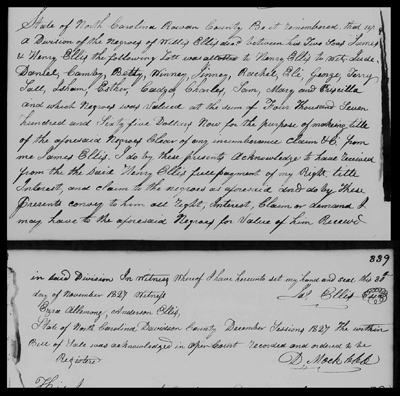 State of North Carolina Rowan County Be it remembered that upon
a Division of the Negroes of Willis Ellis decd between his Two Sons James
& Henry Ellis the following Lott was allotted to Henry Ellis to wit,
Daniel, Camby, Betty, Winney, Jinney, Rachel, Eli, George, Terry
Sall, Isham, Esther, Charles, Sam, Mary and Priscilla
and which Negroes was Valued at the sum of Four Thousand Seven
hundred and Sixty five Dollars Now for the purpose of making title
of the aforesaid Negroes Clear of any incumbrance claim &C from
me James Ellis. I do by these presents Acknowledge to have received
from the the Said Henry Ellis full payment of my Right title
Interest, and claim to the negroes as aforesaid and do by these
presents convey to him all Right, Interest, Claim or demand I
may have to the aforesaid Negroes for Value of him Received
339
in said Division In Witness Whereof I have hereunto set my hand and seal this 3d
day of November 1827 Witness Jas. Ellis Seal
Ezra Allemong, Anderson Ellis,
State of North Carolina Davidson County December Sessions 1827 The within
Bill of Sale was acknowledged in Open Court recorded and ordered to be
Registered D. Mock CCC